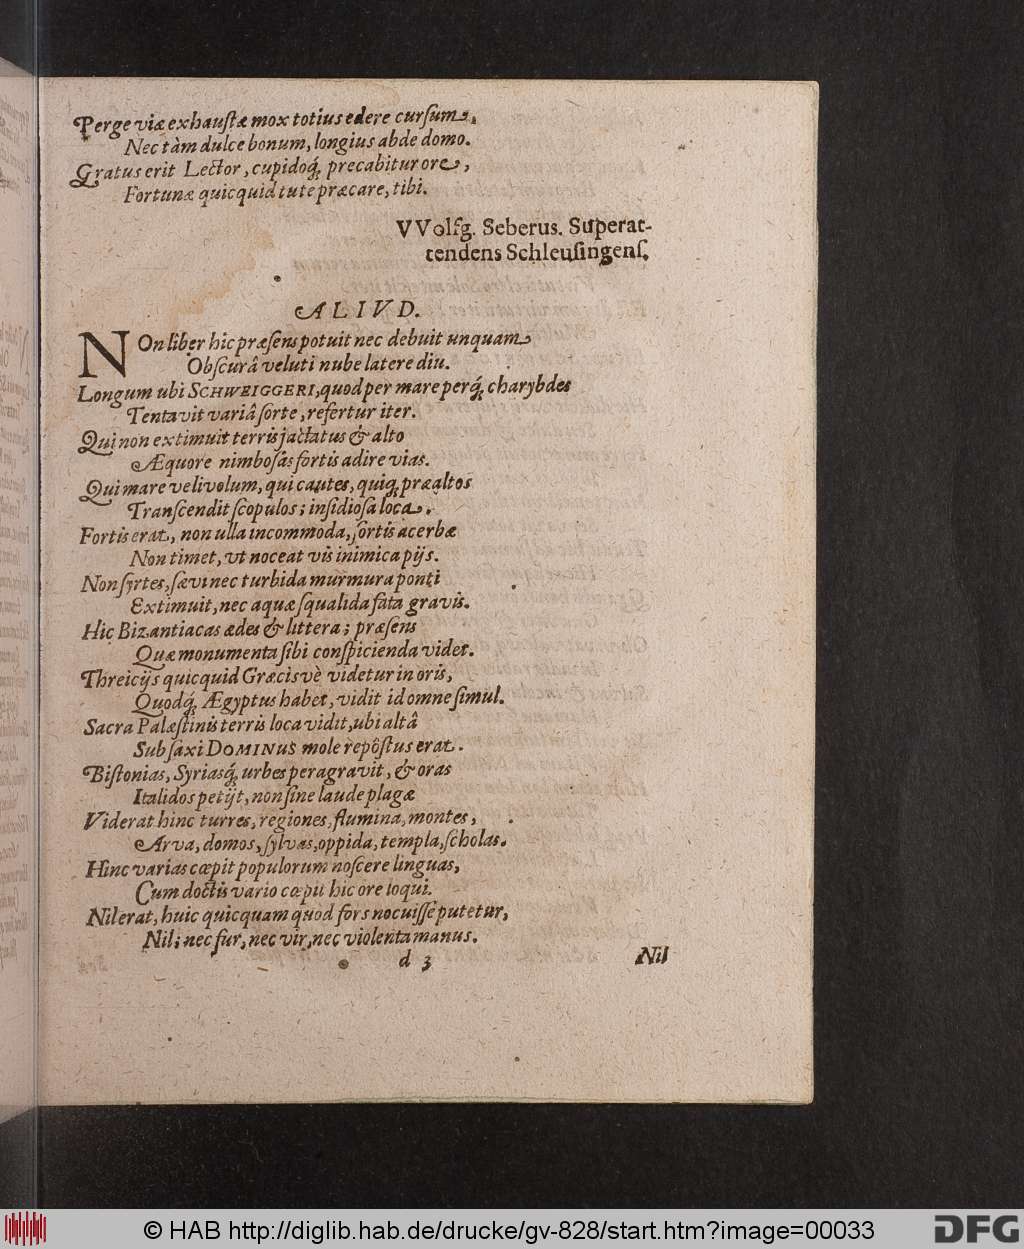 Perge viæ exhaustæ mox totius edere cursum,
Nec tàm dulce bonum, longius abde domo.
Gratus erit Lector, cupidoq́, precabitur ore,
Fortunæ quicquid tute præcare, tibi.
VVolfg. Seberus. Superat-
tendens Schleusingens.
ALIVD.
NOn liber hic præsens potuit nec debuit unquam
Obscurâ veluti nube latere diu.
Longum ubi SCHWEIGGERI, quod per mare perq́, charybdes
Tentavit variâ sorte, refertur iter.
Qui non extimuit terris jactatus & alto
Æquore nimbosas fortis adire vias.
Qui mare velivolum, qui cautes, quiq; præaltos
Transcendit scopulos; insidiosa loca.
Fortis erat, non ulla incommoda, sortis acerbæ
Non timet, ut noceat vis inimica pijs.
Non syrtes, sævi nec turbida murmura ponti
Extimuit, nec aquæ squalida fata gravis.
Hic Bizantiacas ædes & littera; præsens
Quæ monumenta sibi conspicienda videt.
Threicijs quicquid Græcisvè videtur in oris,
Quodq́, Ægyptus habet, vidit id omne simul.
Sacra Palæstinis terris loca vidit, ubi altâ
Sub saxi DOMINUS mole repôstus erat.
Bistonias, Syriasq́, urbes peragravit, & oras
Italidos petijt, non sine laude plagæ
Viderat hinc turres, regiones, flumina, montes,
Arva, domos, sylvas, oppida, templa, scholas.
Hinc varias cœpit populorum noscere linguas,
Cum doctis vario cœpit hic ore loqui.
Nil erat, huic quicquam quod fors nocuisse putetur,
Nil; nec fur, nec vir, nec violenta manus.
d 3
Nil
© HAB http://diglib.hab.de/drucke/gv-828/start.htm?image=00033
DFG